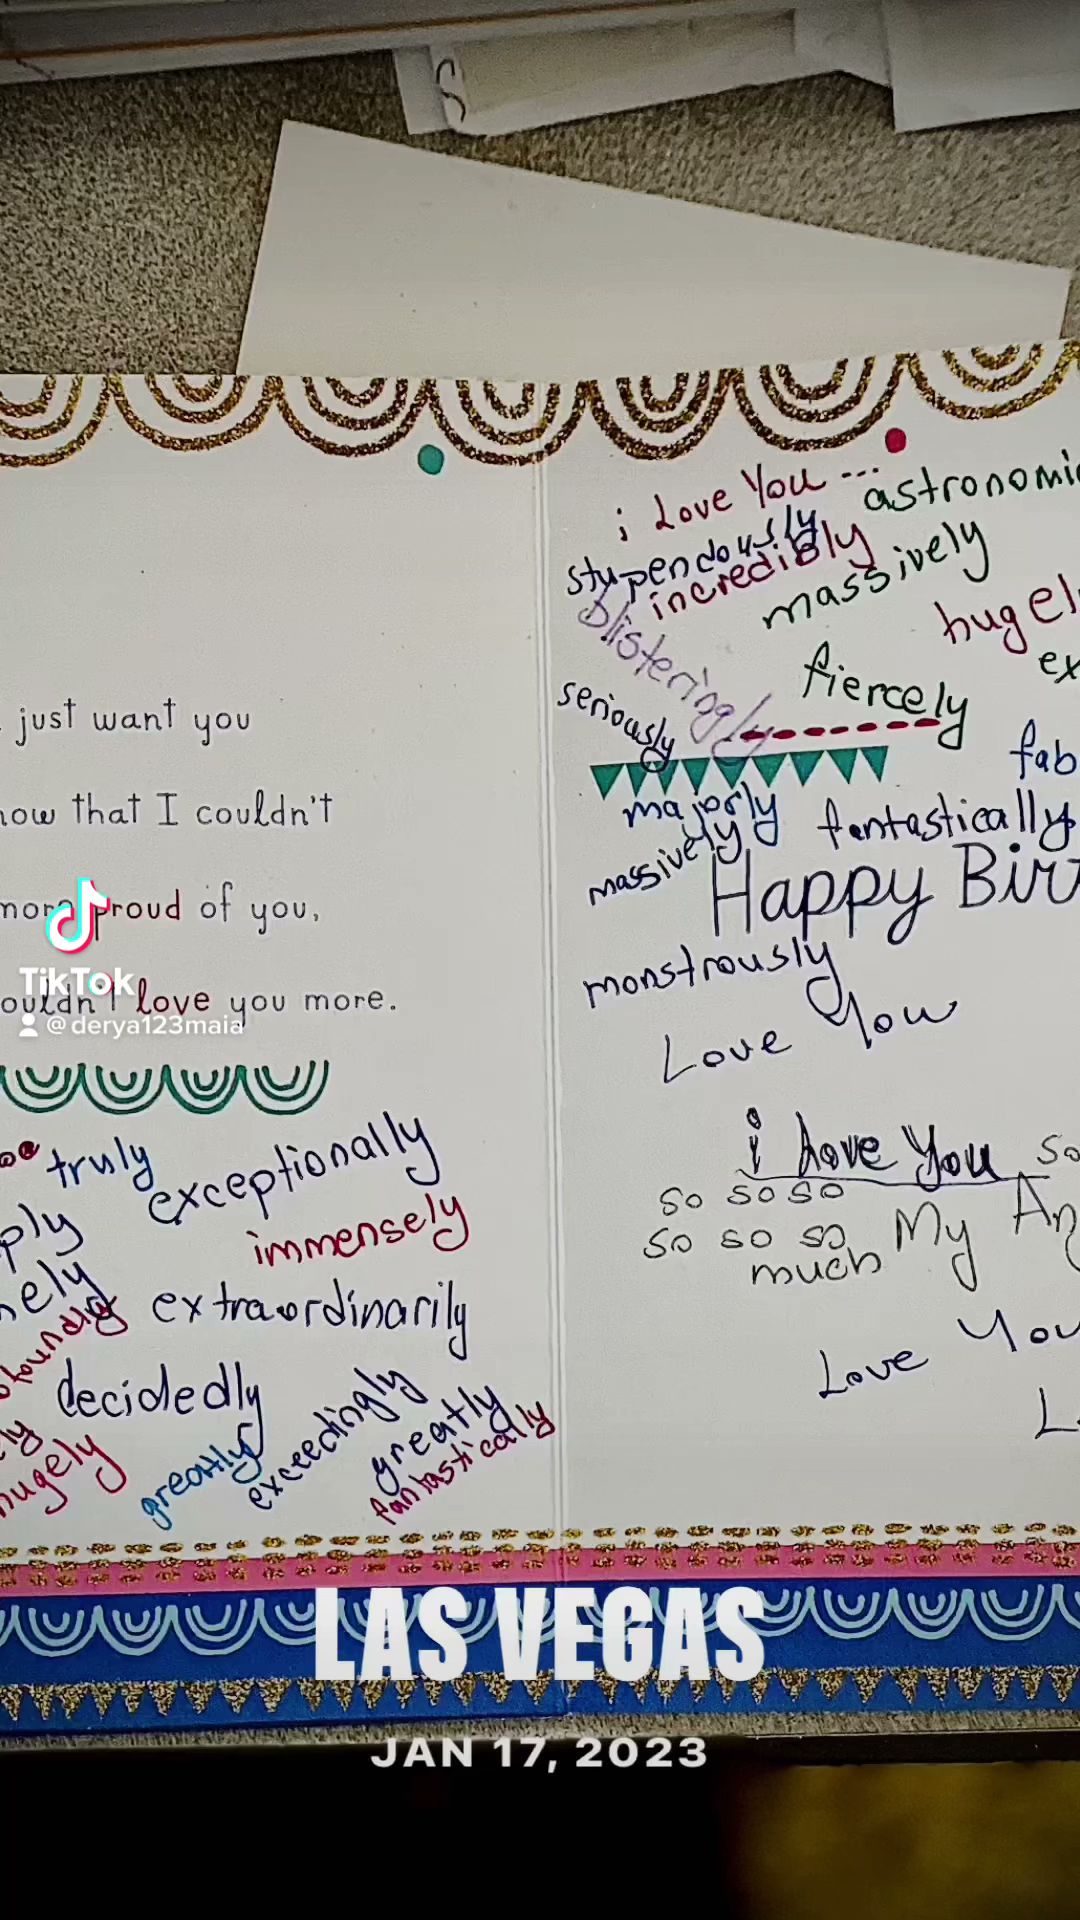 just want you
ow that I couldn't
more proud of you,
ouldn't love you more.
truly
exceptionally
immensely
extraordinarily
decidedly
hugely
greatly
exceedingly
greatly
fantastically
i Love You ...
astronomic
stupendously
incredibly
massively
blisteringly
hugel
ex
fiercely
seriously
fab
majorly
fantastically
massively
Happy Bir
monstrously
Love You
i Love You so
so so so
so so so My An
much
You
Love
L
TikTok
@derya123maia
LAS VEGAS
JAN 17, 2023